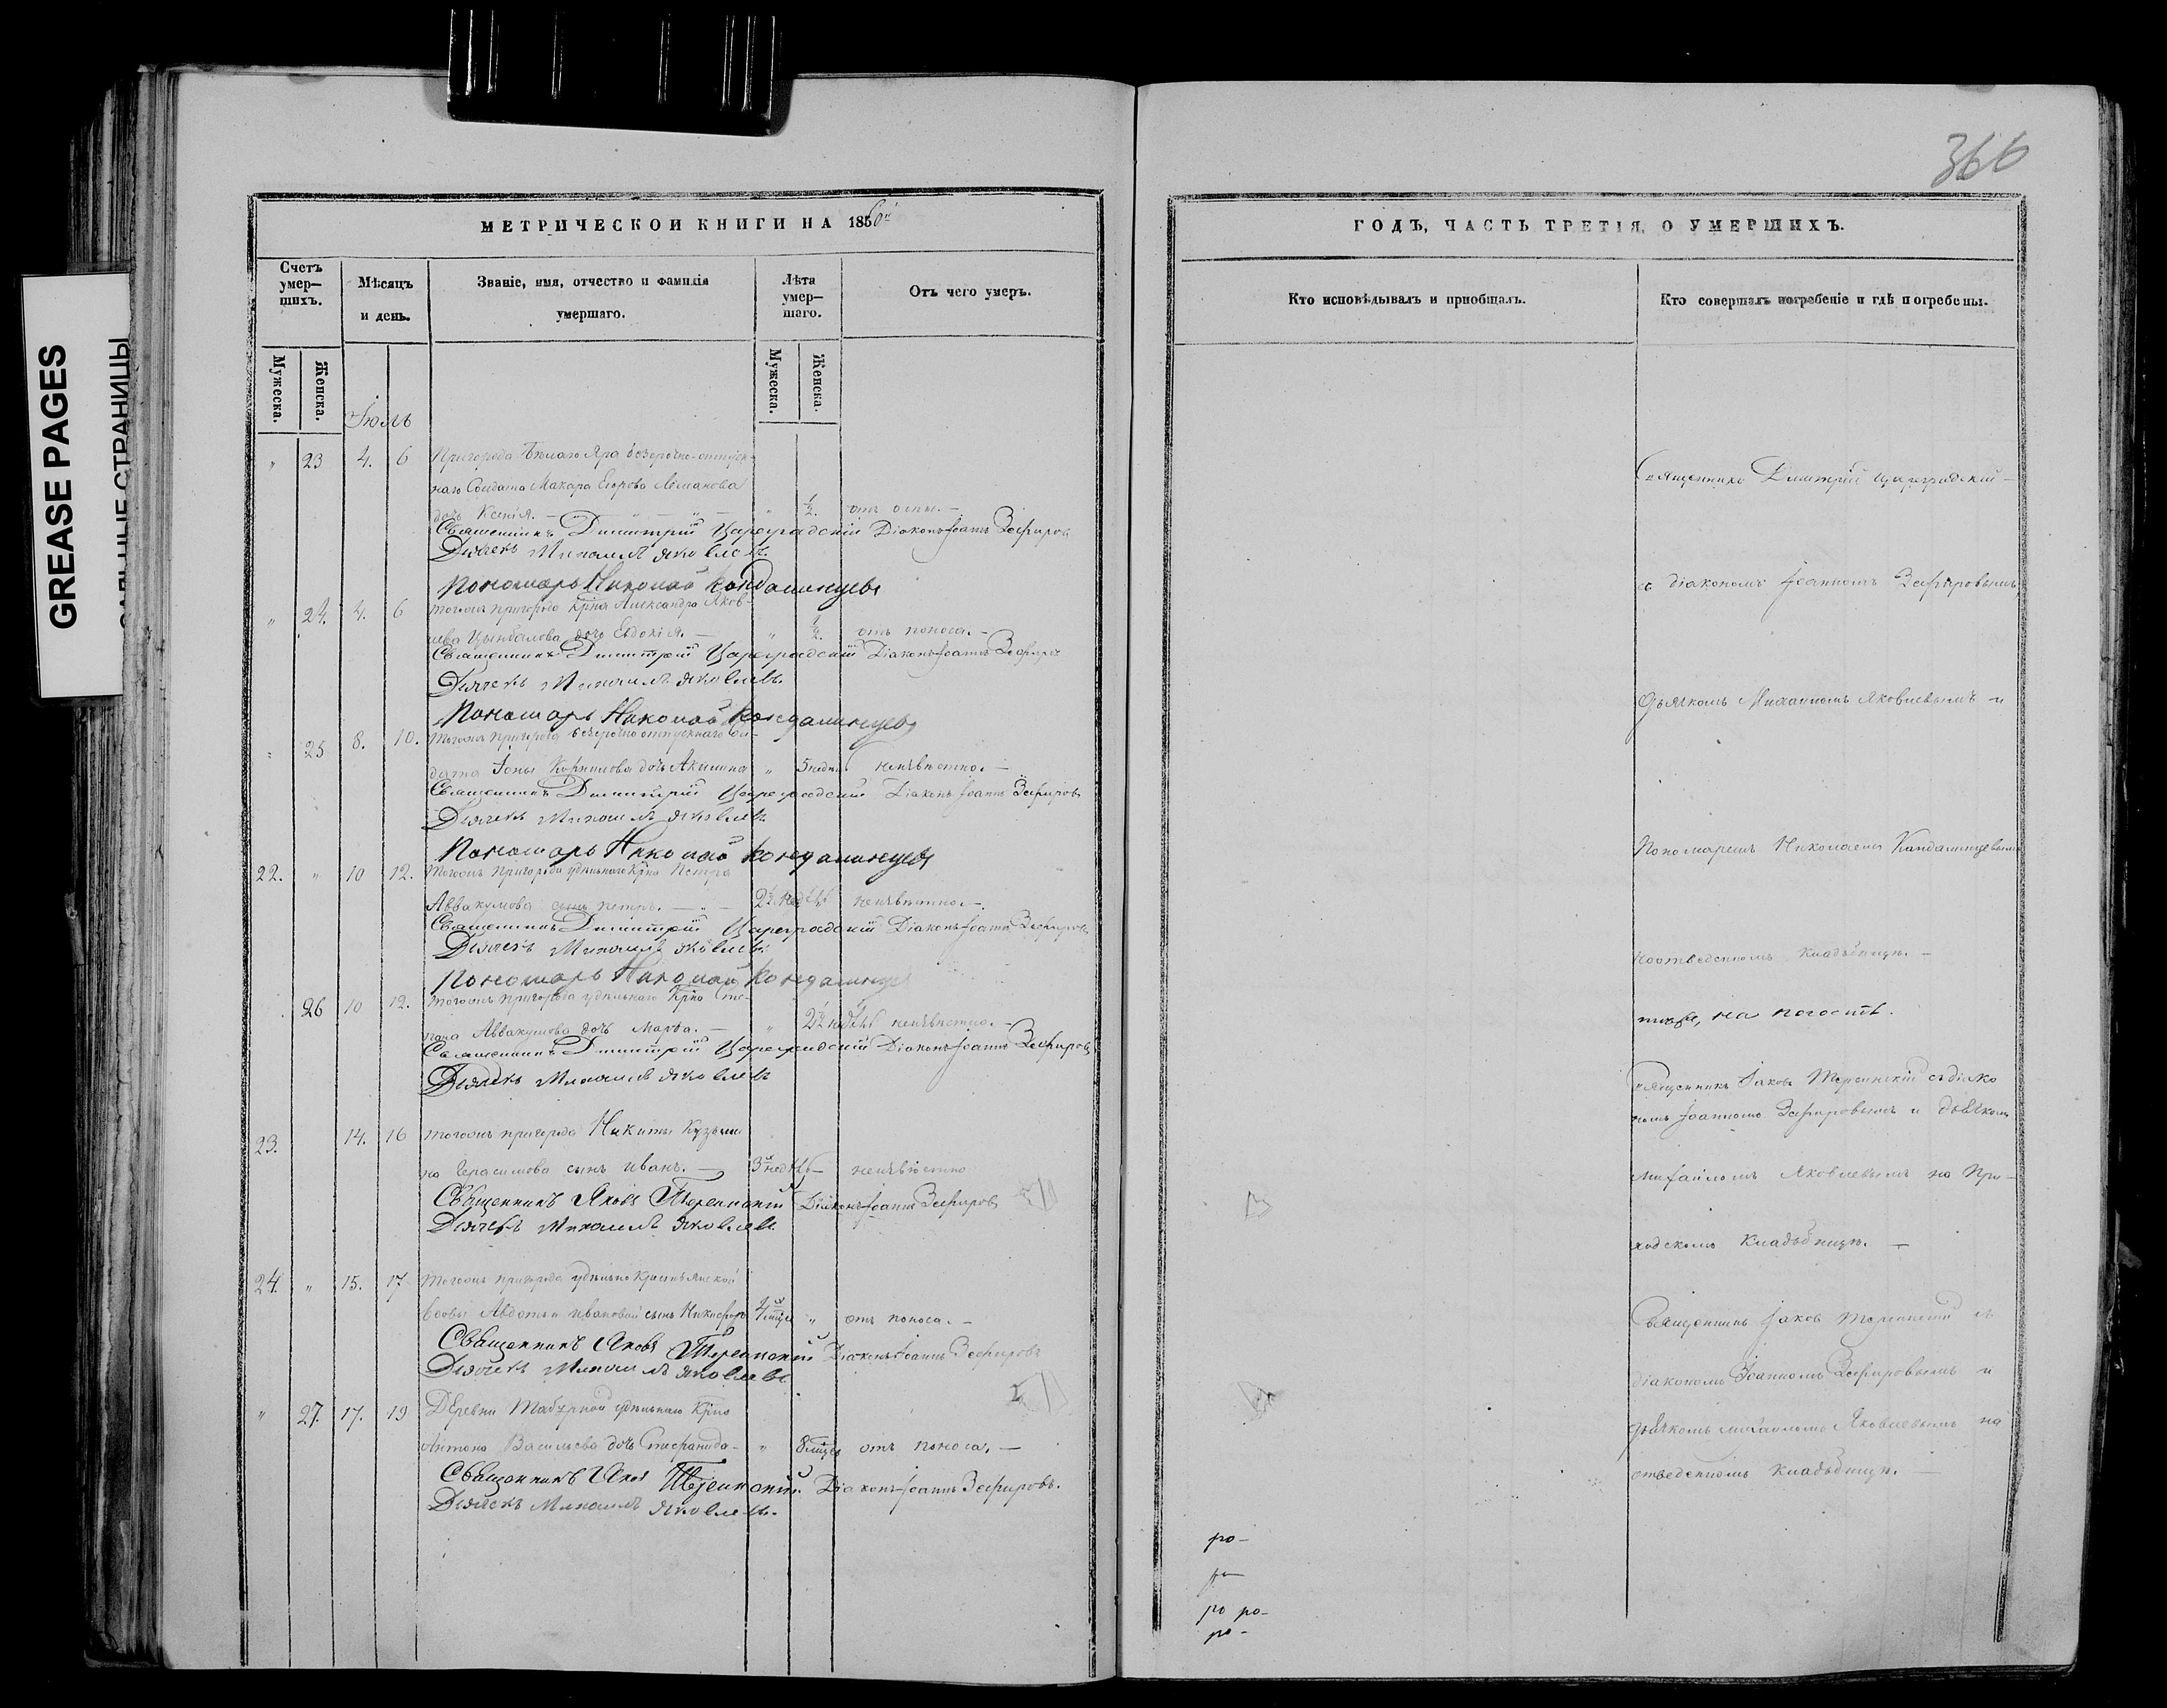 GREASE PAGES
САЛЬНЫЕ СТРАНИЦЫ
МЕТРИЧЕСКОЙ КНИГИ НА 1850й
Счетъ умер—шихъ.
Мѣсяцъ и день.
Званіе, имя, отчество и фамилія умершаго.
Лѣта умер—шаго.
Отъ чего умеръ.
Мужеска.
Женска.
Мужеска.
Женска.
Іюль
" 23 4. 6 Пригорода Бѣлаго Яра безсрочно-отпуск-
наго Солдата Макара Егорова
дочь Ксенія. — " ½. отъ оспы. —
Священникъ Димитрій Цареградскій Діаконъ Іоаннъ Зефировъ
Дьячекъ Михаилъ Яковлевъ.
Пономарь Николай Кондалинцевъ
" 24. 4. 6 Тогожъ пригорода Кр‌на Александра Яков-
лева Цынбалова дочь Евдокія. — " ½. отъ поноса. —
Священникъ Димитрій Цареградскій Діаконъ Іоаннъ Зефировъ
Дьячекъ Михаилъ Яковлевъ.
Пономарь Николай Кондалинцевъ
" 25 8. 10. Тогожъ пригорода безсрочно отпускнаго Сол-
дата Іоны Корнилова дочь Акилина " 5 недѣль неизвѣстно. —
Священникъ Димитрій Цареградскій Діаконъ Іоаннъ Зефировъ
Дьячекъ Михаилъ Яковлевъ.
Пономарь Николай Кондалинцевъ
22. " 10 12. Тогожъ пригорода удѣльнаго Кр‌на Петра
Аввакумова сынъ Петръ. — 2½ недѣль неизвѣстно. —
Священникъ Димитрій Цареградскій Діаконъ Іоаннъ Зефировъ
Дьячекъ Михаилъ Яковлевъ.
Пономарь Николай Кондалинцевъ
26 10 12. Тогожъ пригорода удѣльнаго Кр‌на Сте-
пана Аввакумова дочь Марѳа. — " 2½ недѣль неизвѣстно. —
Священникъ Димитрій Цареградскій Діаконъ Іоаннъ Зефировъ
Дьячекъ Михаилъ Яковлевъ
23. 14. 16 Тогожъ пригорода Никиты Кузьми-
на Герасимова сынъ Иванъ. — 3 недѣль — неизвѣстно
Священникъ Яковъ Терсинскій Діаконъ Іоаннъ Зефировъ
Дьячекъ Михаилъ Яковлевъ
24. " 15. 17 Тогожъ пригорода удѣльно Крестьянской
вдовы Авдотьи Ивановой сынъ Никифоръ 4 " отъ поноса. —
Священникъ Яковъ Терсинскій Діаконъ Іоаннъ Зефировъ
Дьячекъ Михаилъ Яковлевъ
" 27. 17. 19 Деревни удѣльнаго Кр‌на
Антона Васильева дочь Стефанида — " 8 отъ поноса. —
Священникъ Яковъ Терсинскій. Діаконъ Іоаннъ Зефировъ.
Дьячекъ Михаилъ Яковлевъ.
366
ГОДЪ, ЧАСТЬ ТРЕТІЯ, О УМЕРШИХЪ.
Кто исповѣдывалъ и пріобщалъ.
Кто совершалъ погребеніе и гдѣ погребены.
Священникъ Димитрій Цареградскій —
съ діакономъ Іоанномъ Зефировымъ,
дьячкомъ Михаиломъ Яковлевымъ и
Пономаремъ Николаемъ Кандалинцевымъ
на отведенномъ кладбищѣ. —
на погостѣ.
Священникъ Іаковъ Терсинскій съ діако
номъ Іоанномъ Зефировымъ и дьячкомъ
Михаиломъ Яковлевымъ на При-
ходскомъ кладбищѣ. —
Священникъ Іаковъ Терсинскій съ
діакономъ Іоанномъ Зефировымъ и
дьячкомъ Михаиломъ Яковлевымъ на
отведенномъ кладбищѣ. —
ро-
ро ро-
ро -